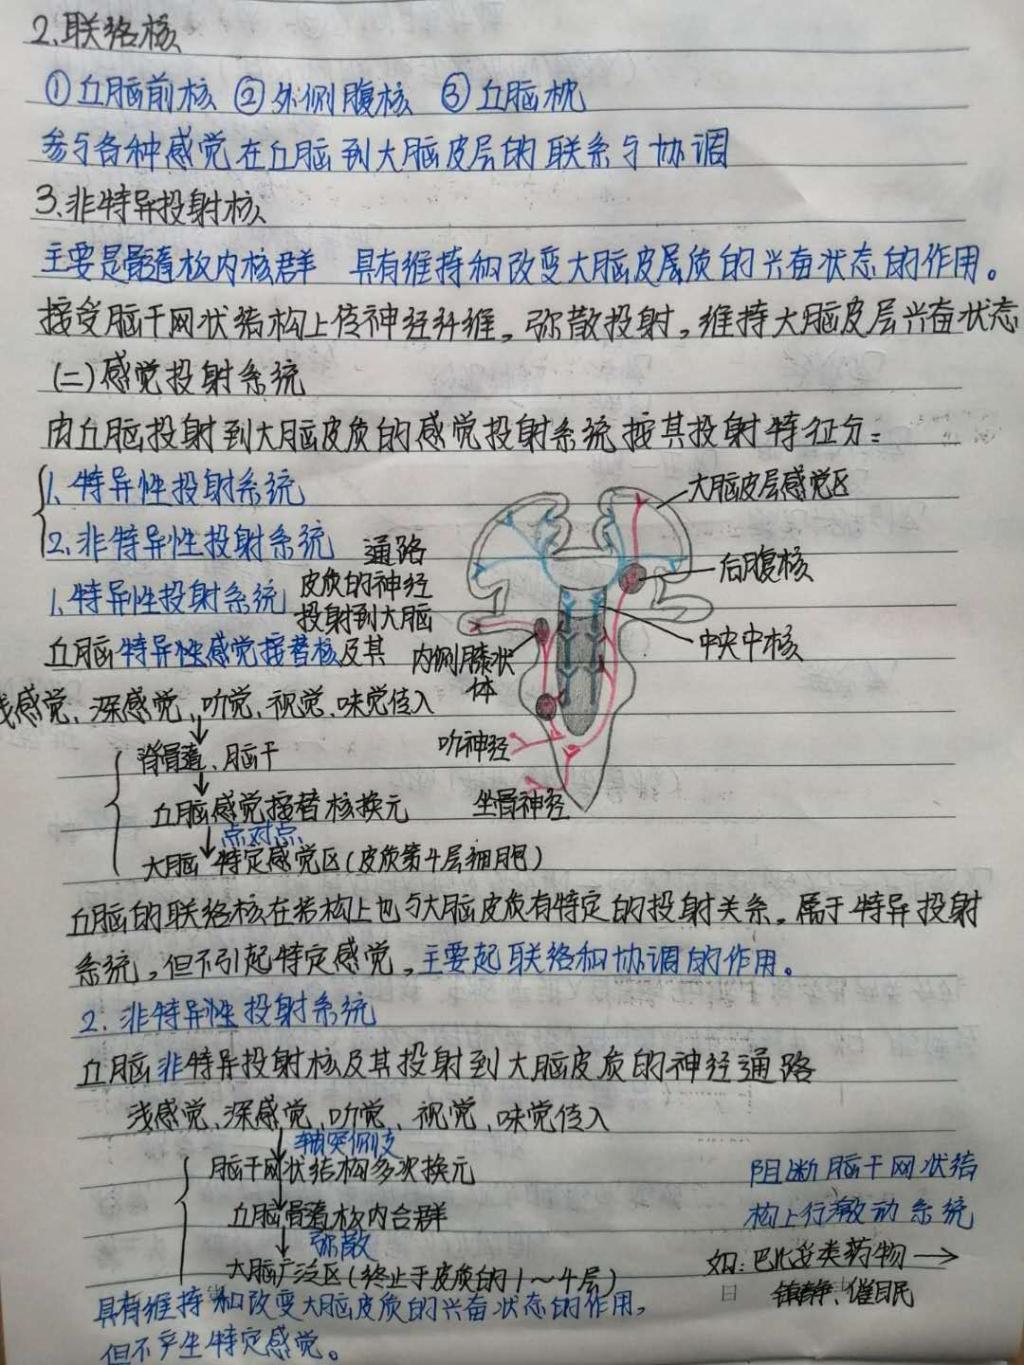 2.联络核
①丘脑前核 ②外侧腹核 ③丘脑枕
参与各种感觉在丘脑到大脑皮层的联系与协调
3.非特异投射核
主要是髓板内核群 具有维持和改变大脑皮层质的兴奋状态的作用。
接受脑干网状结构上传神经纤维，弥散投射，维持大脑皮层兴奋状态
(二)感觉投射系统
由丘脑投射到大脑皮质的感觉投射系统按其投射特征分：
1.特异性投射系统
2.非特异性投射系统
大脑皮层感觉区
后腹核
中央中核
内侧膝状
体
听神经
坐骨神经
1.特异性投射系统
丘脑特异性感觉接替核及其
投射到大脑
皮质的神经
通路
浅感觉、深感觉、听觉、视觉、味觉传入
脊髓、脑干
丘脑感觉接替核换元
点对点
大脑特定感觉区(皮质第4层细胞)
丘脑的联络核在结构上也与大脑皮质有特定的投射关系。属于特异投射
系统，但不引起特定感觉，主要起联络和协调的作用。
2.非特异性投射系统
丘脑非特异投射核及其投射到大脑皮质的神经通路
浅感觉、深感觉、听觉、视觉、味觉传入
轴突侧支
脑干网状结构多次换元
丘脑髓板内合群
弥散
大脑广泛区(终止于皮质的1~4层)
具有维持和改变大脑皮质的兴奋状态的作用，
但不产生特定感觉。
阻断脑干网状结
构上行激动系统
如:巴比妥类药物→
镇静、催眠